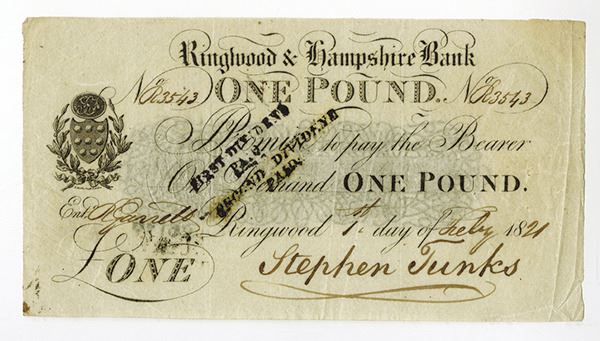 Ringwood & Hampshire Bank
No R3543 ONE POUND. No R3543
I Promise to pay the Bearer
On Demand ONE POUND.
FIRST DIVIDEND
PAID.
SECOND DIVIDEND
PAID.
Entd. Ringwood 1st day of Feby 1821
£ONE Stephen Tunks